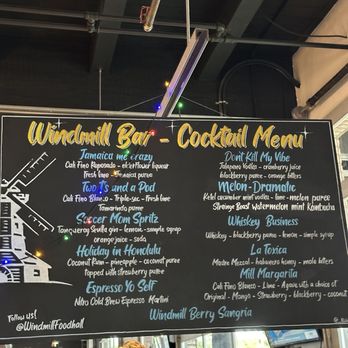 Windmill Bar - Cocktail Menu
Jamaica me crazy
Cali Fino Reposado - elderflower liqueur
fresh lime - Jamaica puree
Two P's and a Pod
Cali Fino Blanco - Triple-sec - fresh lime
Tamarindo puree
Soccer Mom Spritz
Tanqueray Sevilla gin - lemon - simple syrup
orange juice - soda
Holiday in Honolulu
Coconut Rum - pineapple - coconut puree
topped with strawberry puree
Espresso Yo Self
Nitro Cold Brew Espresso Martini
Follow us!
@WindmillFoodhall
Dont Kill My Vibe
Jalapeno Vodka - cranberry juice
blackberry puree - orange bitters
Melon-Dramatic
Ketel cucumber mint vodka - lime - melon puree
Strainge Beast Watermelon mint Kombucha
Whiskey Business
Whiskey - blackberry puree - lemon - simple syrup
La Toxica
Madre Mezcal - habanero honey - mole bitters
Mill Margarita
Cali Fino Blanco - Lime - Agave with a choice of
Original - Mango - Strawberry - blackberry - coconut
Windmill Berry Sangria